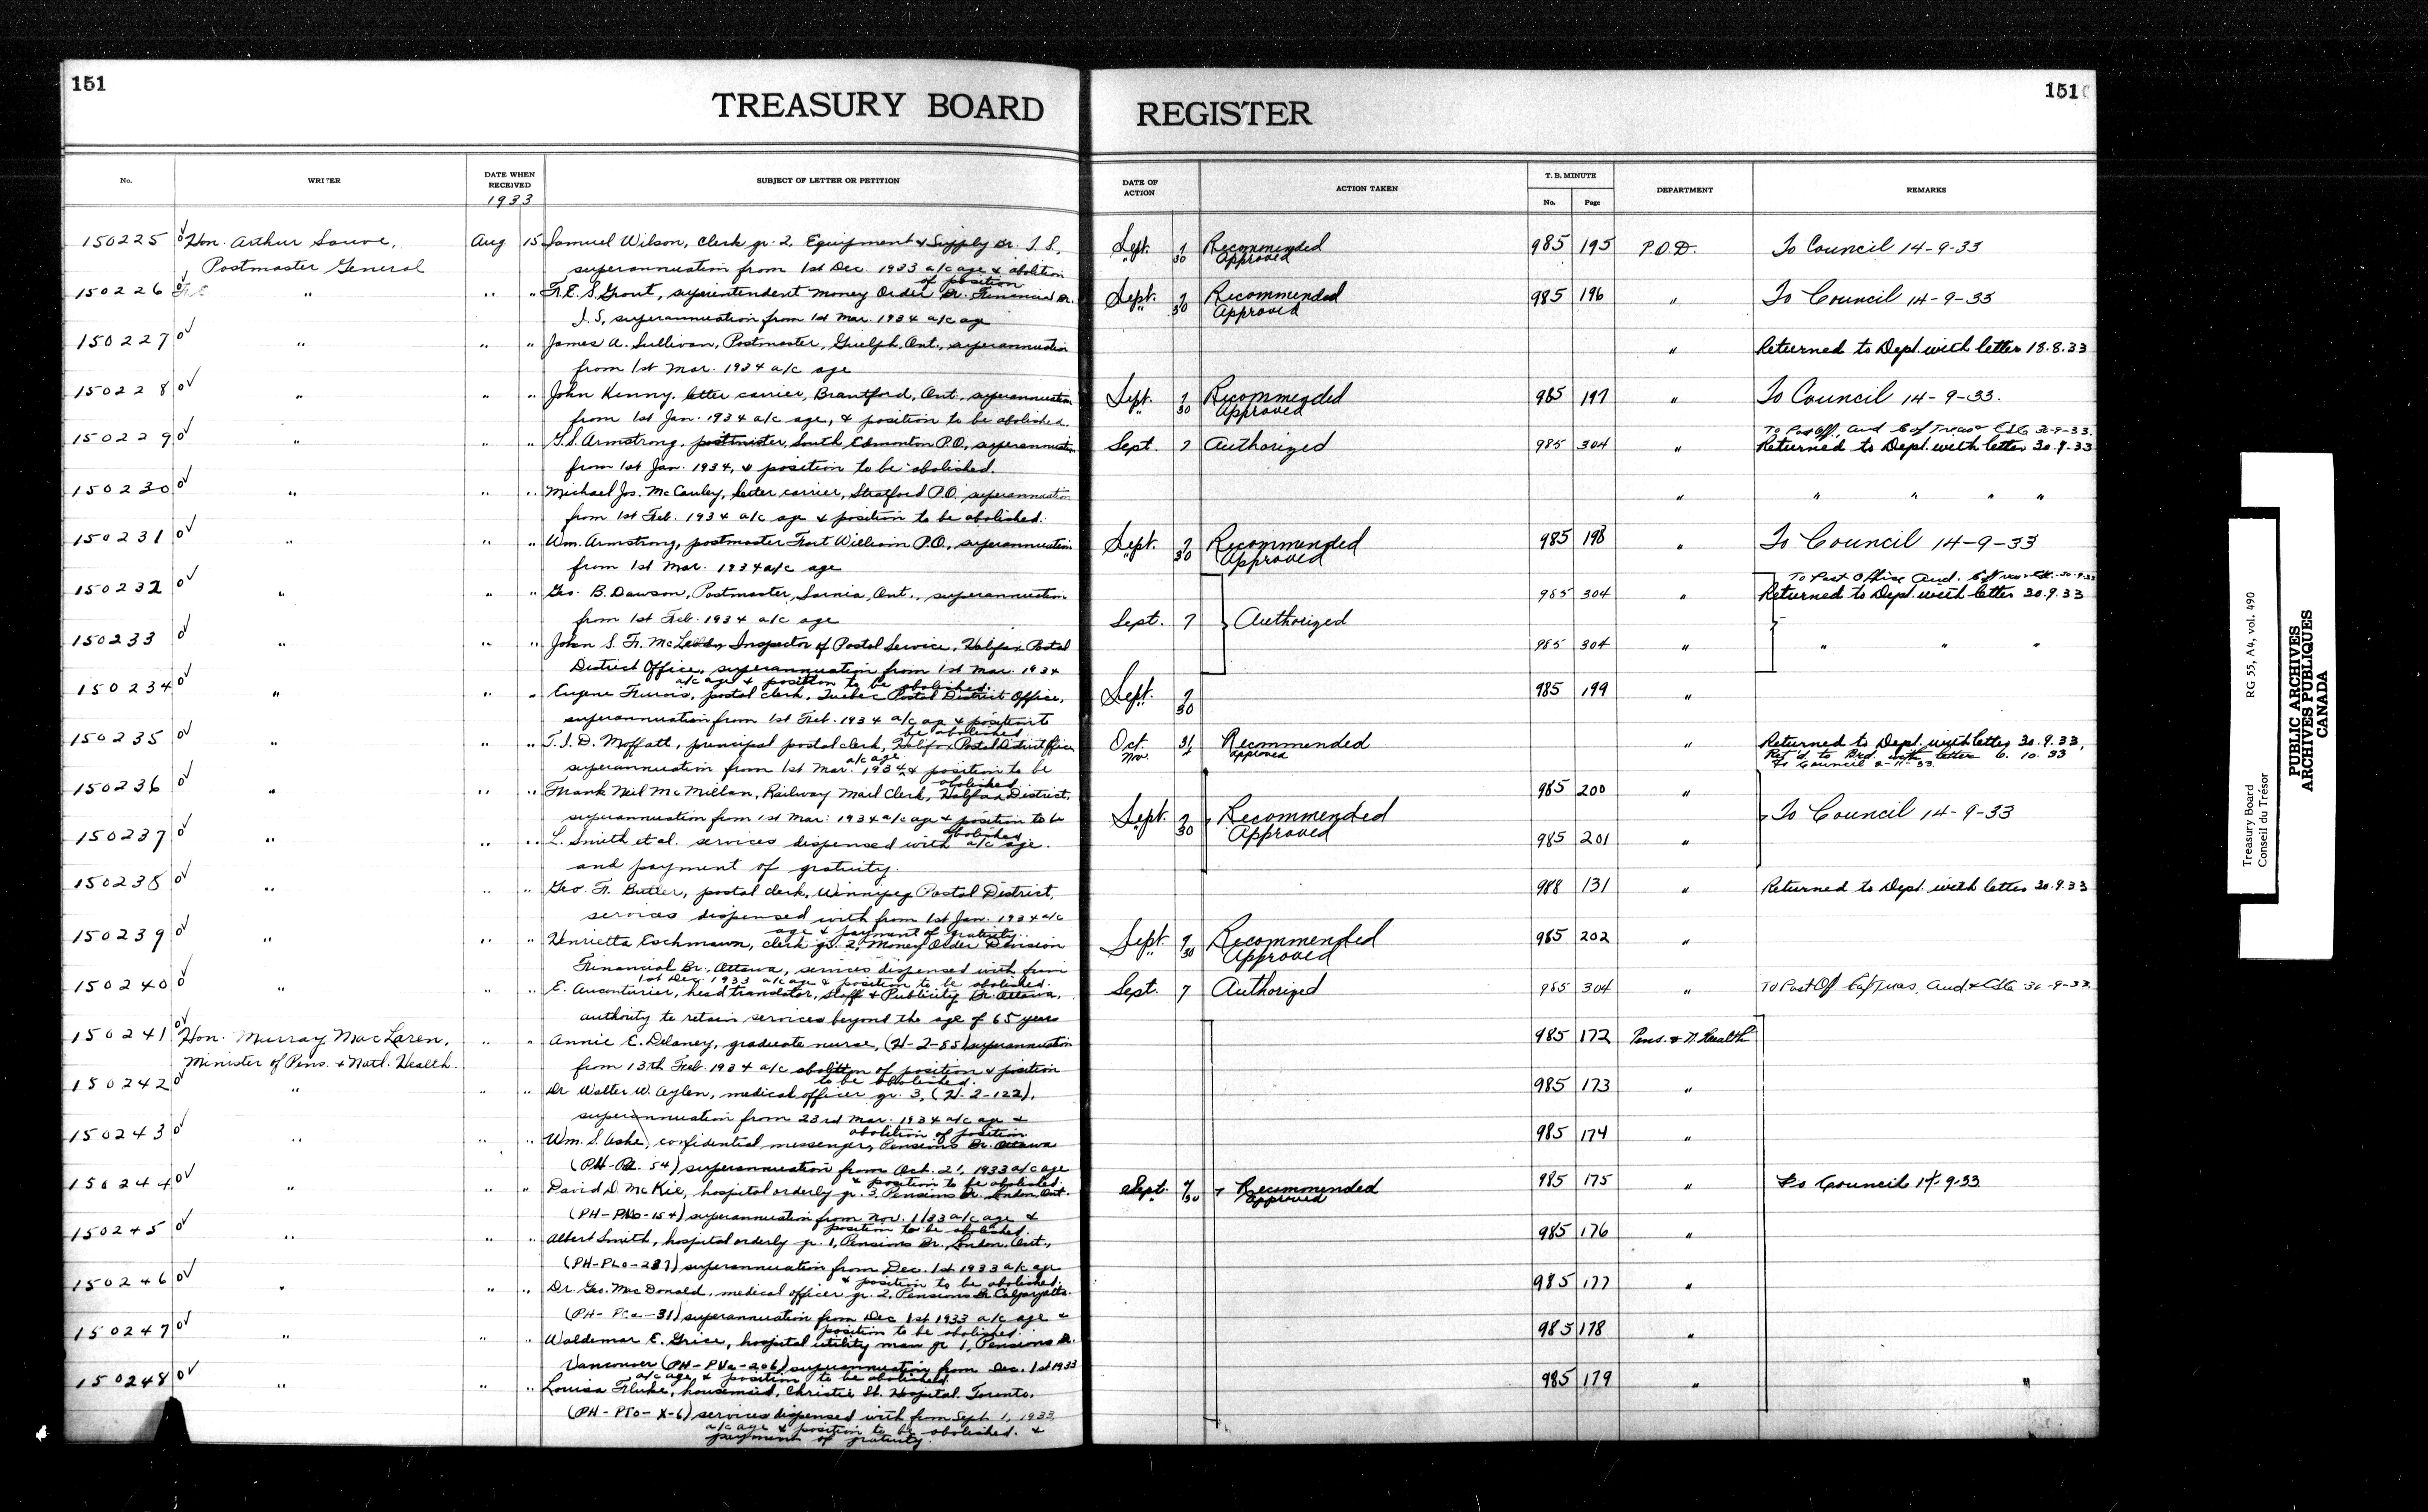 151
151
TREASURY BOARD REGISTER
No. WRITER DATE WHEN RECEIVED SUBJECT OF LETTER OR PETITION DATE OF ACTION ACTION TAKEN T. B. MINUTE No. Page DEPARTMENT REMARKS
1933
150225 Hon. Arthur Sauve, Aug 15 Samuel Wilson, Clerk gr. 2, Equipment & Supply Br. I.S., Sept. 7 Recommended 985 195 P.O.D. To Council 14-9-33
Postmaster General superannuation from 1st Dec. 1933 a/c age & abolition " 30 Approved
of position
150226 " " " F.E.S. Grout, superintendent Money Order Br. Financial Br. Sept. 7 Recommended 985 196 " To Council 14-9-33
I.S, superannuation from 1st Mar. 1934 a/c age " 30 Approved
150227 " " " James A. Sullivan, Postmaster, Guelph, Ont., superannuation " Returned to Dept. with letter 18.8.33
from 1st Mar. 1934 a/c age
150228 " " " John Kenny, letter carrier, Brantford, Ont., superannuation Sept. 7 Recommended 985 197 " To Council 14-9-33.
from 1st Jan. 1934 a/c age, & position to be abolished. " 30 Approved
To Post Off. Aud 30-9-33.
150229 " " " G.S. Armstrong, postmaster, South Edmonton P.O., superannuation Sept. 7 Authorized 985 304 " Returned to Dept. with letter 30.9.33
from 1st Jan. 1934, & position to be abolished.
150230 " " " Michael Jos. McCauley, letter carrier, Stratford P.O., superannuation " " " " "
from 1st Feb. 1934 a/c age & position to be abolished.
150231 " " " Wm. Armstrong, postmaster Fort William P.O., superannuation Sept. 7 Recommended 985 198 " To Council 14-9-33
from 1st Mar. 1934 a/c age " 30 Approved
To Post Office Aud. 30-9-33
150232 " " " Geo. B. Dawson, Postmaster, Sarnia, Ont., superannuation 985 304 " Returned to Dept. with letter 30.9.33
from 1st Feb. 1934 a/c age Sept. 7 Authorized
150233 " " " John S. Fr. Inspector of Postal Service, Halifax Postal 985 304 " " " "
District Office, superannuation from 1st Mar. 1934
a/c age & position to be abolished.
150234 " " " Eugene postal clerk, Quebec Postal District Office, Sept. 7 985 199 "
superannuation from 1st Feb. 1934 a/c age & position to " 30
be abolished
150235 " " " T.J.D. Moffatt, principal postal clerk, Halifax Postal District Office Oct. 31 Recommended " Returned to Dept. with letter 30.9.33,
a/c age Nov. Approved Ret'd to Brd. with letter 6.10.33
superannuation from 1st Mar. 1934 & position to be To Council 2-11-33.
abolished
150236 " " " Frank Neil McMillan, Railway Mail Clerk, Halifax District, 985 200 "
superannuation from 1st Mar. 1934 a/c age & position to be Sept. 7 Recommended To Council 14-9-33
abolished " 30 Approved
150237 " " " L. Smith et al. services dispensed with a/c age. 985 201 "
and payment of gratuity.
150238 " " " Geo. Fr. Butler, postal clerk, Winnipeg Postal District, 988 131 " Returned to Dept. with letter 30.9.33
services dispensed with from 1st Jan. 1934 a/c
age & payment of gratuity.
150239 " " " Henrietta Eschmann, clerk gr. 2, Money Order Division Sept. 7 Recommended 985 202 "
Financial Br., Ottawa, services dispensed with from " 30 Approved
1st Dec. 1933 a/c age & position to be abolished.
150240 " " " E. Aucenturier, head translator, Staff & Publicity Br. Ottawa, Sept. 7 Authorized 985 304 " To Post Of. Aud. 30-9-33.
authority to retain services beyond the age of 65 years
150241 Hon. Murray MacLaren, " " Annie E. Delaney, graduate nurse, (H-2-55) superannuation 985 172 Pens. & N. Health
Minister of Pens. & Natl. Health. from 13th Feb. 1934 a/c abolition of position & position
to be abolished.
150242 " " " Dr Walter W. Aylen, medical officer gr. 3, (H-2-122), 985 173 "
superannuation from 23rd Mar. 1934 a/c age &
abolition of position
150243 " " " Wm. S. Ashe, confidential messenger, Pensions Br. Ottawa 985 174 "
(PH-Pa. 54) superannuation from Oct. 21, 1933 a/c age
& position to be abolished.
150244 " " " David D. McKie, hospital orderly gr. 3, Pensions Br. London Ont. Sept. 7 Recommended 985 175 " To Council 14-9-33
(PH-PLo-154) superannuation from Nov. 1/33 a/c age & " 30 Approved
position to be abolished.
150245 " " " Albert Smith, hospital orderly gr. 1, Pensions Br., London, Ont., 985 176 "
(PH-PLo-237) superannuation from Dec. 1st 1933 a/c age
& position to be abolished.
150246 " " " Dr. Geo. MacDonald, medical officer gr. 2, Pensions Br Calgary Alta. 985 177 "
(PH-PCa-31) superannuation from Dec 1st 1933 a/c age &
position to be abolished.
150247 " " " Waldemar E. Grice, hospital utility man gr 1, Pensions Br. 985 178 "
Vancouver (PH-PVa-206) superannuation from Dec. 1st 1933
a/c age & position to be abolished.
150248 " " " Louisa Fluke, housemaid, Christie St. Hospital, Toronto, 985 179 " "
(PH-PTo-X-6) services dispensed with from Sept 1, 1933
a/c age & position to be abolished. &
payment of gratuity.
Treasury Board RG 55, A4, vol. 490
Conseil du Trésor
PUBLIC ARCHIVES
ARCHIVES PUBLIQUES
CANADA